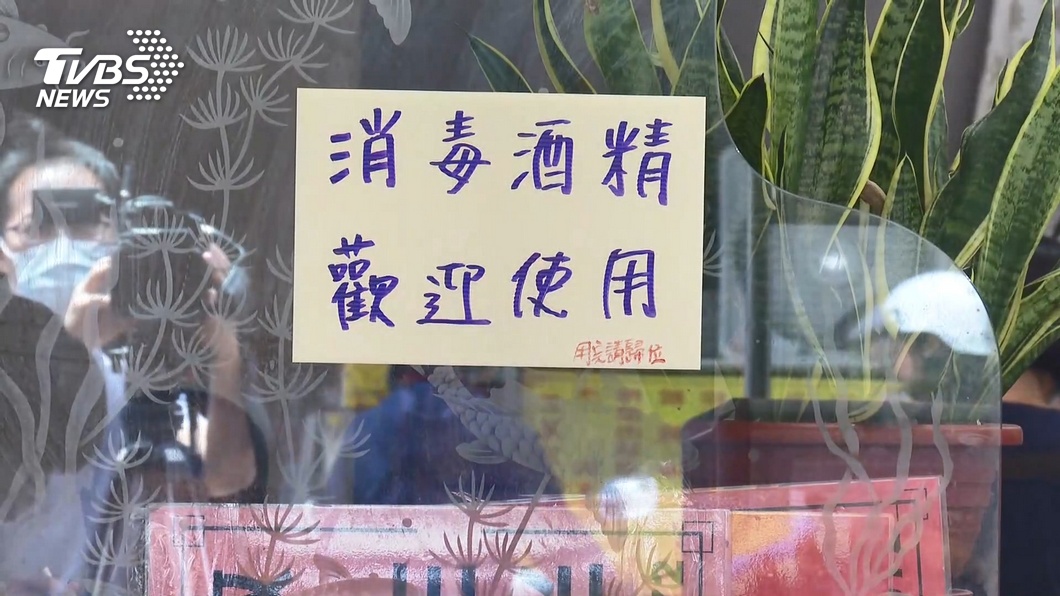 TVBS
NEWS
消毒酒精
歡迎使用
用完請歸位